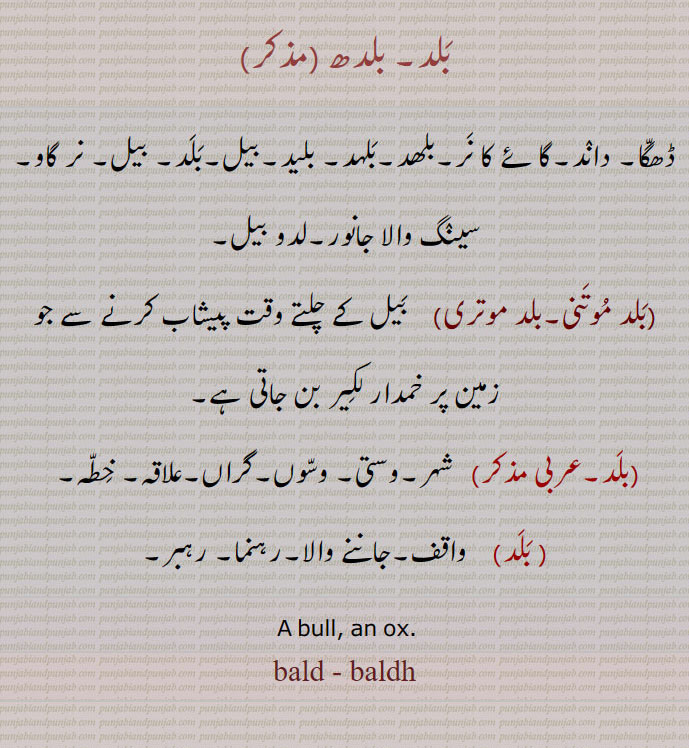 بَلد ۔ بلدھ (مذکر)
ڈھگّا۔ داند۔گائے کا نَر۔بلھد۔بَلہد۔ بلید۔بیل۔بَلَد۔ بیل۔ نر گاو۔
سینگ والا جانور۔لدو بیل۔
(بَلد مُوتَنی۔بلد موتری) بَیل کے چلتے وقت پیشاب کرنے سے جو
زمین پر خمدار لکِیر بن جاتی ہے۔
(بلَد۔عربی مذکر) شہر۔وستی۔ وسّوں۔گراں۔علاقہ۔ خِطّہ۔
(بَلَد) واقف۔جاننے والا۔رہنما۔ رہبر۔
A bull, an ox.
bald - baldh